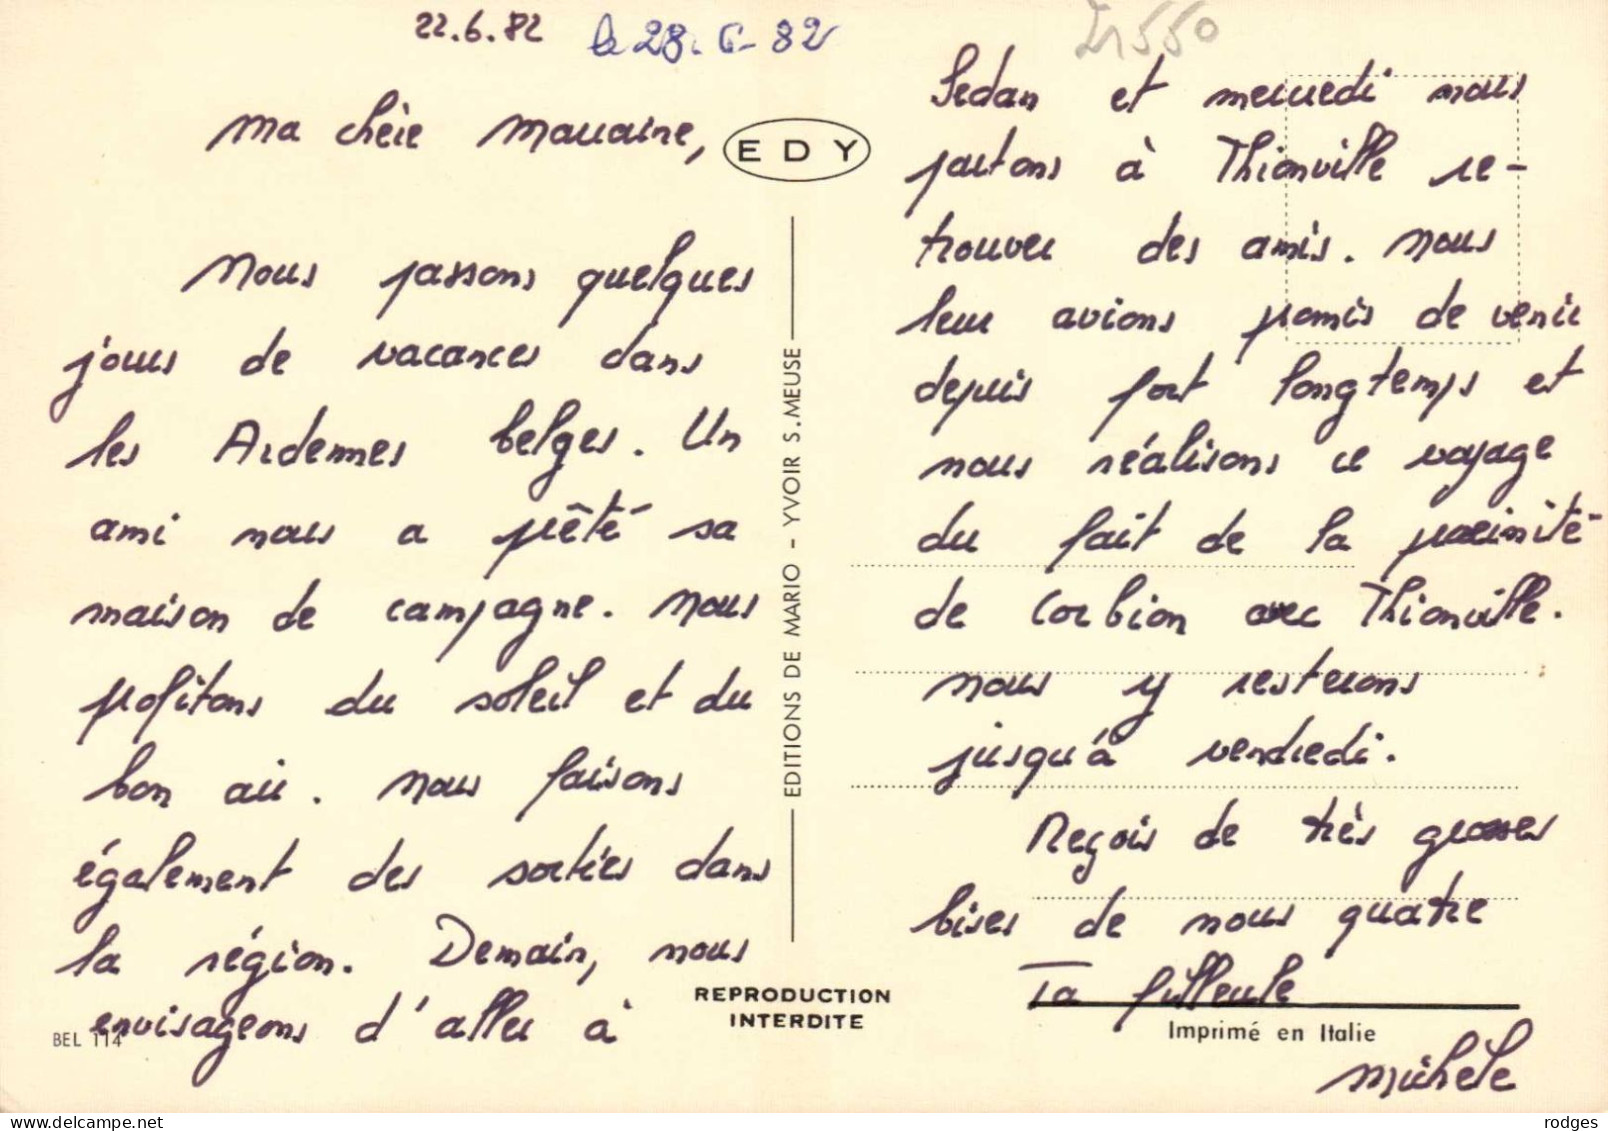 22.6.82
le 28-6-82
Z1550
Ma chère Marraine,
EDY
Nous passons quelques
jours de vacances dans
les Ardennes belges. Un
ami nous a prêté sa
maison de campagne. Nous
profitons du soleil et du
bon air. Nous faisons
également des sorties dans
la région. Demain, nous
envisageons d'aller à
BEL 114
EDITIONS DE MARIO - YVOIR S.MEUSE
REPRODUCTION
INTERDITE
Sedan et mercredi nous
partons à Thionville re-
trouver des amis. Nous
leur avions promis de venir
depuis fort longtemps et
nous réalisons ce voyage
du fait de la proximité
de Corbion avec Thionville.
Nous y resterons
jusqu'à vendredi.
Reçois de très grosses
bises de nous quatre
Ta filleule
Imprimé en Italie
Michèle
rodges